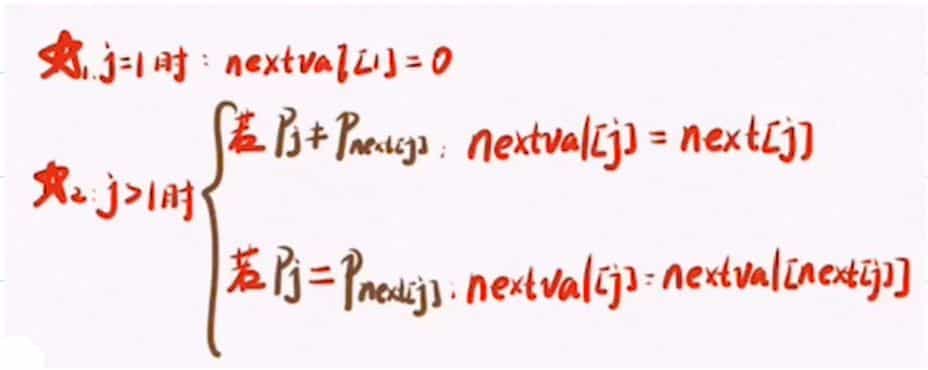 ☆1. j=1时: nextval[1]=0
☆2. j>1时
若 Pj≠Pnext[j]: nextval[j]=next[j]
若 Pj=Pnext[j]: nextval[j]=nextval[next[j]]